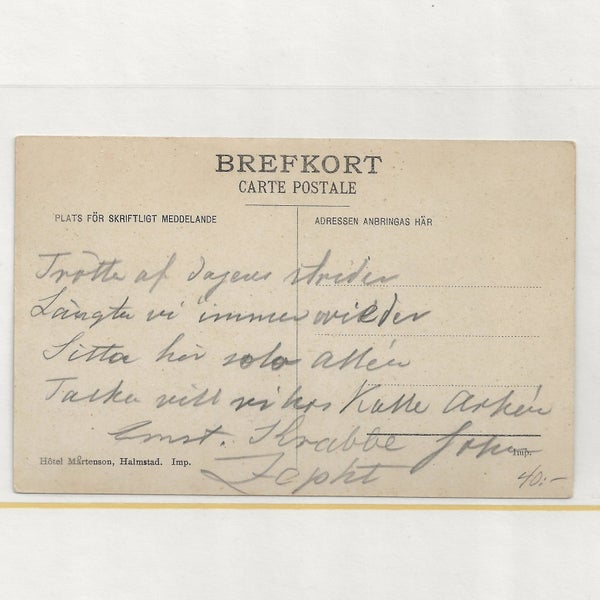 BREFKORT
CARTE POSTALE
PLATS FÖR SKRIFTLIGT MEDDELANDE
ADRESSEN ANBRINGAS HÄR
Trötta af dagens strider
Längta vi immer wieder
Sitta här solo allén
Taska vill vi hos Kalle Askén
Ernst. Krabbe John
Zepht
Hôtel Mårtenson, Halmstad. Imp.
Imp.
40:-